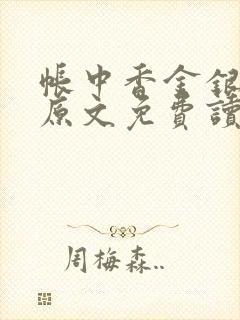 帳中香金銀
原文免費讀
周梅森..